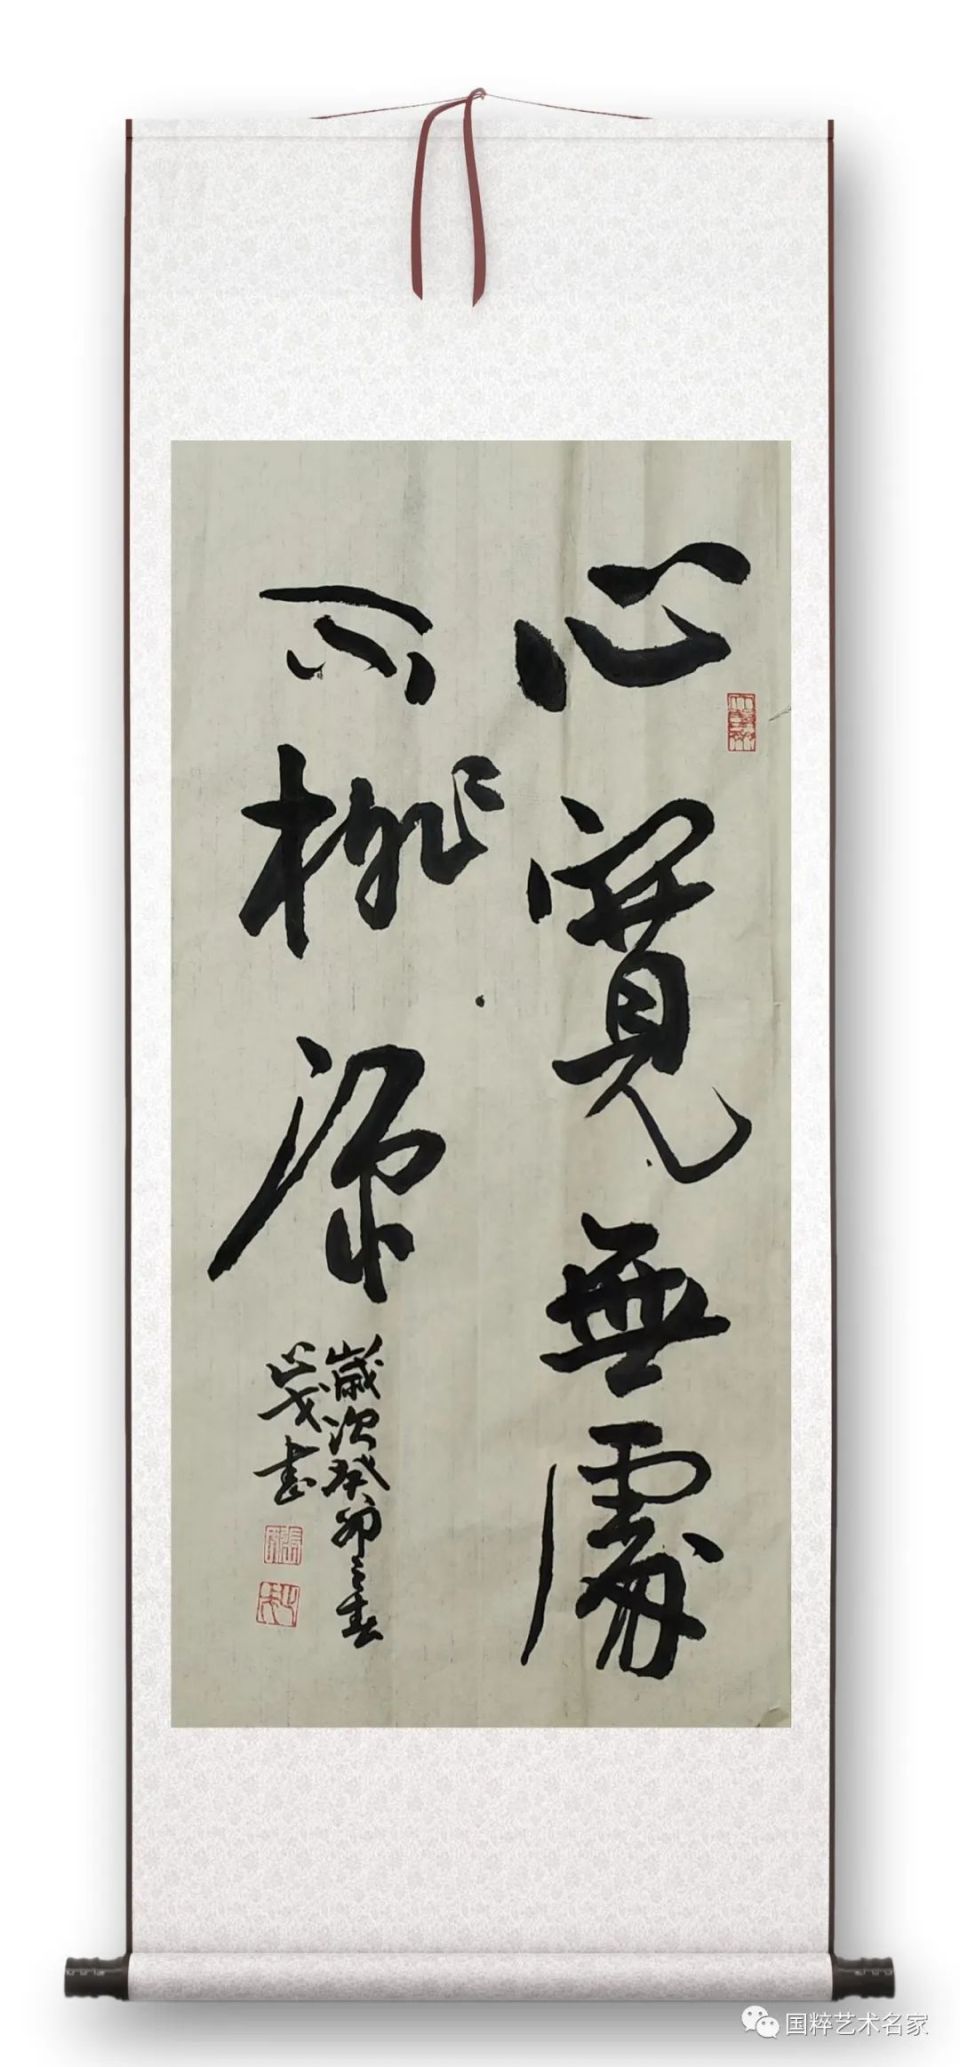 心寬無處
不桃源
歲次癸卯之春
心戈書
国粹艺术名家